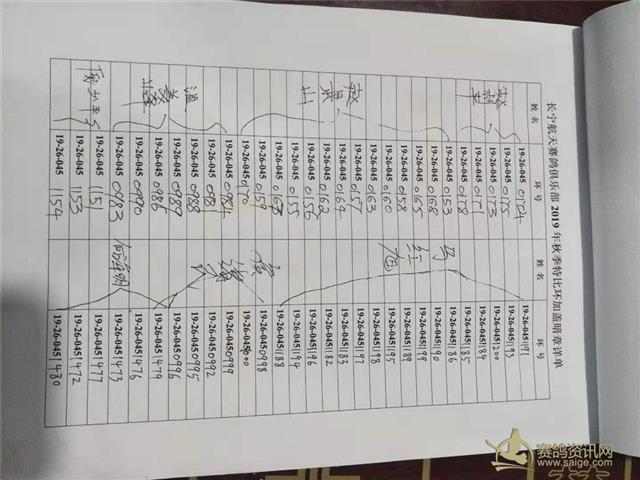 长宁航天赛鸽俱乐部2019年秋季特比环加盖暗章详单
姓名 环号 姓名 环号
19-26-045 0174 19-26-045 1191
19-26-045 0175 19-26-045 1193
19-26-045 0173 19-26-045 1200
19-26-045 0171 19-26-045 1184
19-26-045 0178 19-26-045 1185
19-26-045 0153 19-26-045 1186
19-26-045 0168 19-26-045 1190
19-26-045 0165 19-26-045 1199
19-26-045 0158 19-26-045 1189
19-26-045 0160 19-26-045 1195
19-26-045 0163 19-26-045 1198
19-26-045 0157 19-26-045 1197
19-26-045 0164 19-26-045 1183
19-26-045 0162 19-26-045 1182
19-26-045 0156 19-26-045 1196
19-26-045 0155 19-26-045 1194
19-26-045 19-26-045 1188
19-26-045 0159 19-26-045 0998
19-26-045 0170 19-26-045
19-26-045 0984 19-26-045 0999
19-26-045 0981 19-26-045 0992
19-26-045 0988 19-26-045 0995
19-26-045 0989 19-26-045 0996
19-26-045 0986 19-26-045 1479
19-26-045 0990 19-26-045 1476
19-26-045 0983 19-26-045 1473
19-26-045 1151 19-26-045 1477
19-26-045 1153 19-26-045 1472
19-26-045 1154 19-26-045 1480
马红旭
赛鸽资讯网
www.saige.com